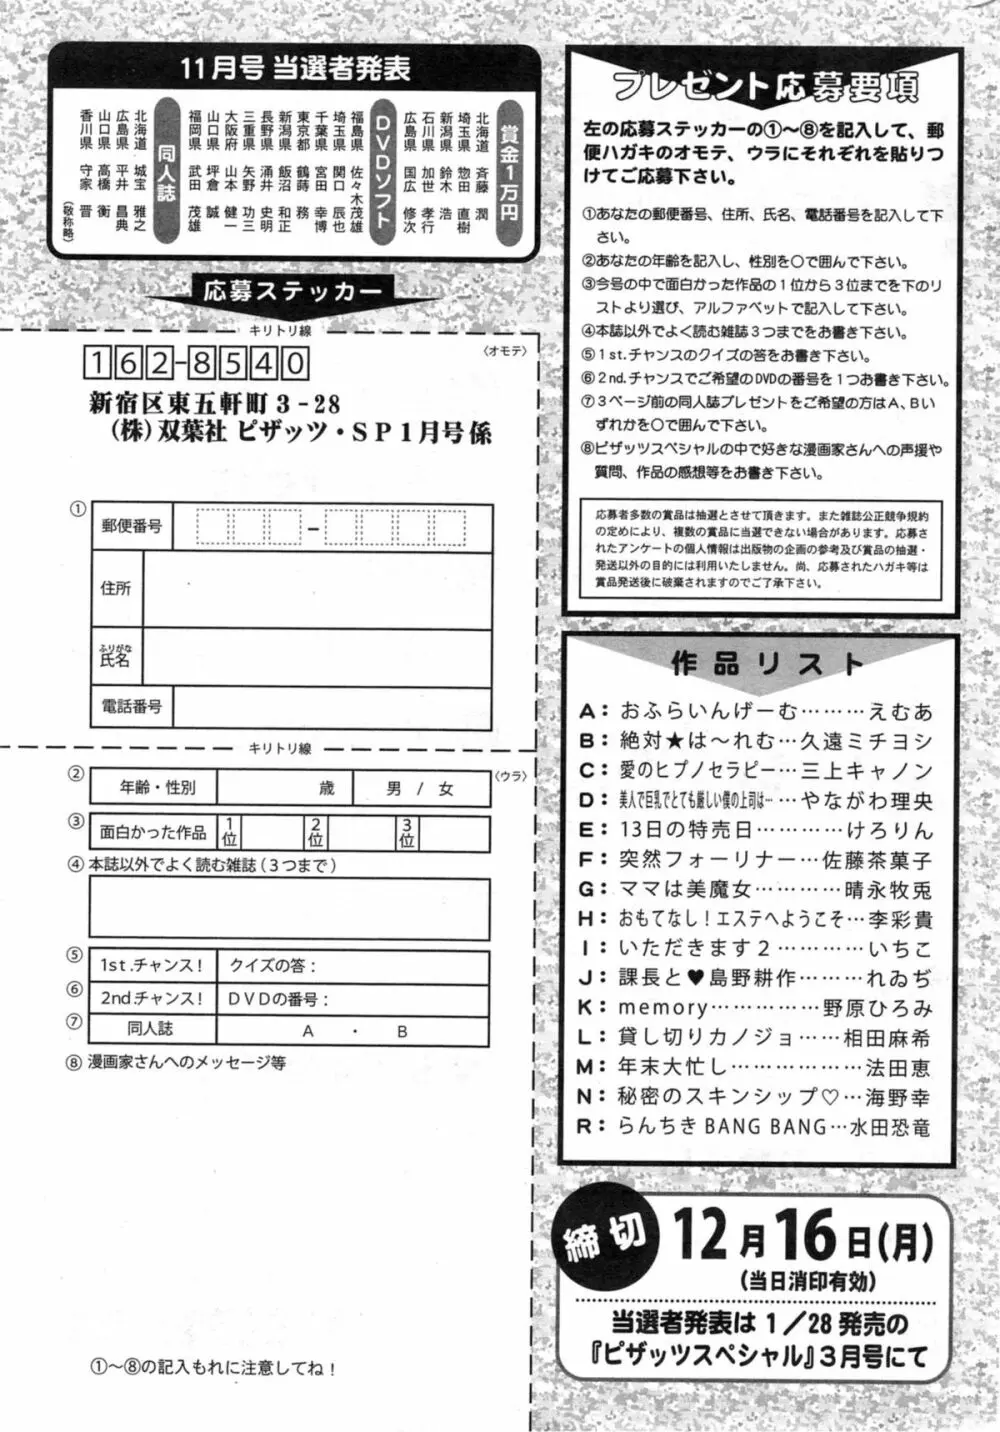 11月号 当選者発表
賞金1万円
北海道 斉藤 潤
埼玉県 惣田 直樹
新潟県 鈴木 浩
石川県 加世 孝行
広島県 国広 修次
DVDソフト
福島県 佐々木茂雄
埼玉県 関口 辰也
千葉県 宮田 幸博
東京都 鶴蒔 務
新潟県 飯沼 和正
長野県 涌井 史明
三重県 矢野 功三
大阪府 山本 健一
山口県 坪倉 誠
福岡県 武田 茂雄
同人誌
北海道 城宝 雅之
広島県 平井 昌典
山口県 高橋 衡
香川県 守家 晋
(敬称略)
応募ステッカー
キリトリ線
〈オモテ〉
162-8540
新宿区東五軒町3-28
(株)双葉社 ピザッツ・SP1月号係
①
郵便番号
住所
ふりがな
氏名
電話番号
キリトリ線
〈ウラ〉
② 年齢・性別 歳 男 / 女
③ 面白かった作品 1位 2位 3位
④ 本誌以外でよく読む雑誌(3つまで)
⑤ 1st.チャンス! クイズの答:
⑥ 2ndチャンス! DVDの番号:
⑦ 同人誌 A ・ B
⑧ 漫画家さんへのメッセージ等
①〜⑧の記入もれに注意してね!
プレゼント応募要項
左の応募ステッカーの①〜⑧を記入して、郵
便ハガキのオモテ、ウラにそれぞれを貼りつ
けてご応募下さい。
①あなたの郵便番号、住所、氏名、電話番号を記入して下
さい。
②あなたの年齢を記入し、性別を〇で囲んで下さい。
③今号の中で面白かった作品の1位から3位までを下のリ
ストより選び、アルファベットで記入して下さい。
④本誌以外でよく読む雑誌3つまでをお書き下さい。
⑤1st.チャンスのクイズの答をお書き下さい。
⑥2nd.チャンスでご希望のDVDの番号を1つお書き下さい。
⑦3ページ前の同人誌プレゼントをご希望の方はA、Bい
ずれかを〇で囲んで下さい。
⑧ピザッツスペシャルの中で好きな漫画家さんへの声援や
質問、作品の感想等をお書き下さい。
応募者多数の賞品は抽選とさせて頂きます。また雑誌公正競争規約
の定めにより、複数の賞品に当選できない場合があります。応募さ
れたアンケートの個人情報は出版物の企画の参考及び賞品の抽選・
発送以外の目的には利用いたしません。尚、応募されたハガキ等は
賞品発送後に破棄されますのでご了承下さい。
作品リスト
A:おふらいんげーむ………えむあ
B:絶対★は〜れむ…久遠ミチヨシ
C:愛のヒプノセラピー…三上キャノン
D:美人で巨乳でとても厳しい僕の上司は…やながわ理央
E:13日の特売日…………けろりん
F:突然フォーリナー…佐藤茶菓子
G:ママは美魔女…………晴永牧兎
H:おもてなし!エステへようこそ…李彩貴
I:いただきます2…………いちこ
J:課長と♥島野耕作……れゐぢ
K:memory……………野原ひろみ
L:貸し切りカノジョ……相田麻希
M:年末大忙し………………法田恵
N:秘密のスキンシップ♡…海野幸
R:らんちき BANG BANG…水田恐竜
締切
12月16日(月)
(当日消印有効)
当選者発表は1/28発売の
『ピザッツスペシャル』3月号にて